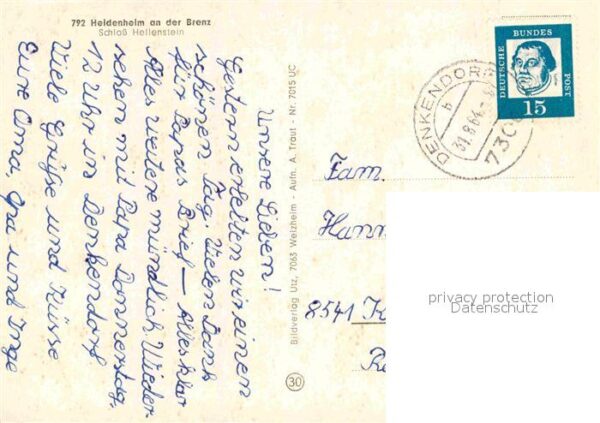 792 Heidenheim an der Brenz
Schloß Hellenstein
Unsere Lieben!
Gestern erhelten wir einen
schönen Tag. Vielen Dank
für Papas Brief – Alles klar
Alles weitere mündlich. Wieder-
sehen mit Papa Donnerstag,
12 Uhr in Denkendorf
Viele Grüße und Küsse
Eure Oma, Opa und Inge
Bildverlag Utz, 7063 Welzheim - Aufn. A. Traut - Nr. 7015 UC
30
DEUTSCHE BUNDES POST
15
DENKENDORF
b
31.8.64
730
Fam.
Hann
8541 K
privacy protection
Datenschutz